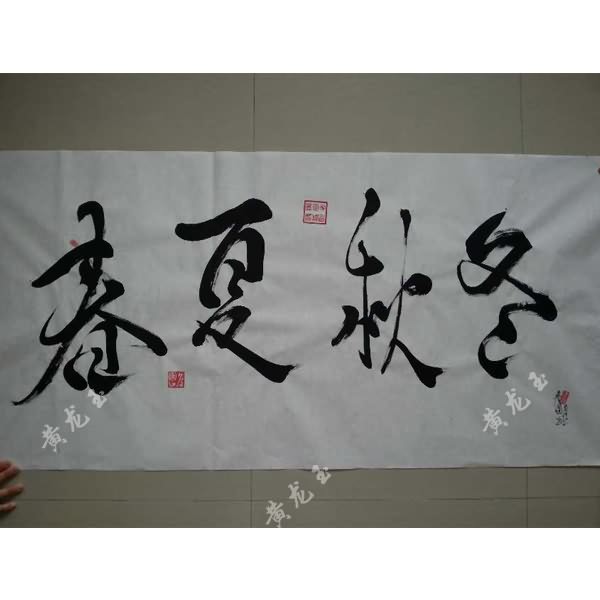 春夏秋冬
黄龙玉
黄龙玉
黄龙玉